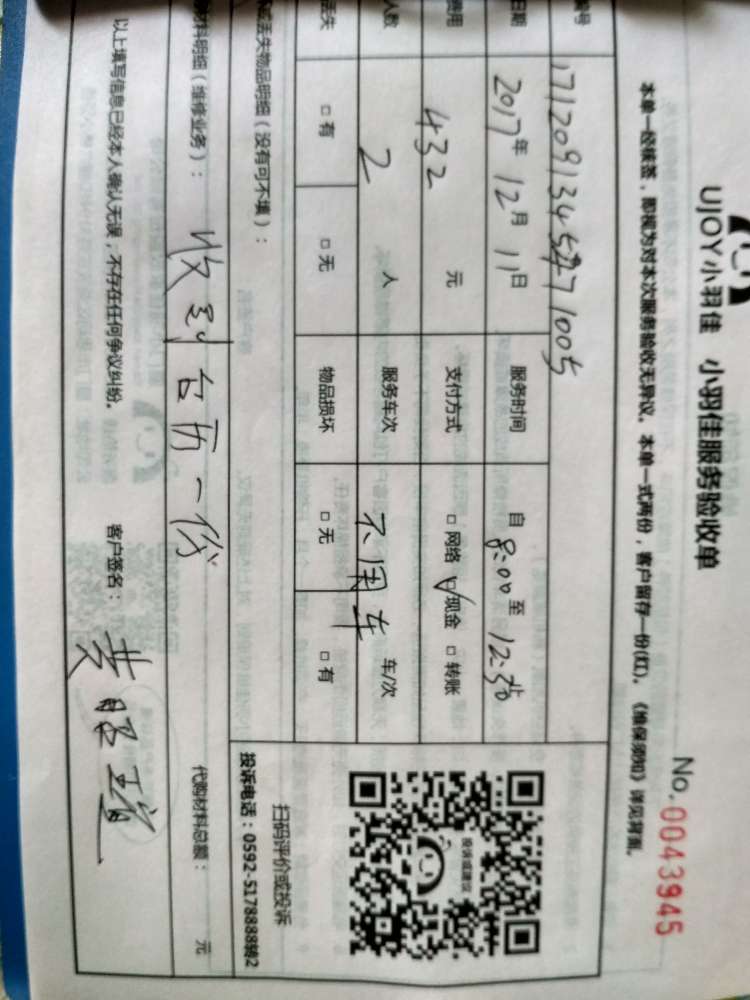 UJOY小羽佳 小羽佳服务验收单
No. 0043945
本单一经核签，即视为对本次服务验收无异议。本单一式两份，客户留存一份(红)。《维保须知》详见背面。
编号
日期 2017年 12月 11日 服务时间 自 8:00 至
费用 432 元 支付方式 □网络 ☑现金 □转账
人数 2 人 服务车次 不用车 车/次
丢失 □有 □无 物品损坏 □无 □有
或丢失物品明细（没有可不填）：
扫码评价或投诉
投诉电话：0592-5178888转2
投诉或建议
材料明细（维修业务）： 收到台历一份 代购材料总额： 元
以上填写信息已经本人确认无误，不存在任何争议纠纷。 客户签名：